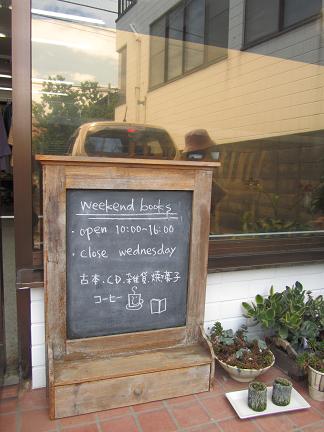 weekend books
・open 10:00~16:00
・close wednesday
古本.CD.雑貨.焼菓子
コーヒー